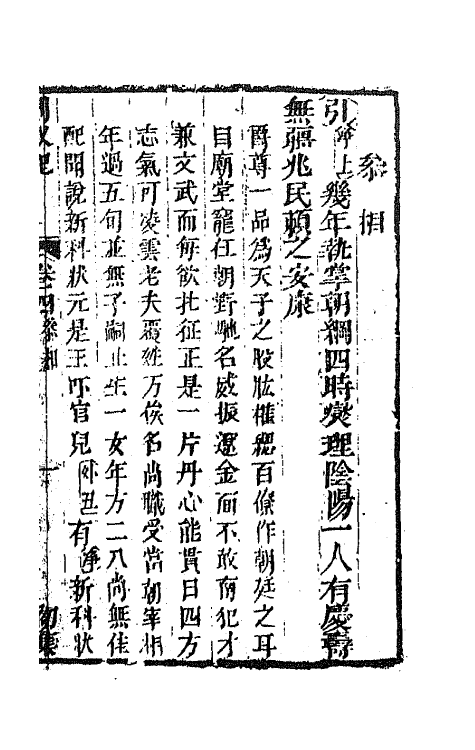 叅相
引淨上幾年執掌朝綱四時爕理陰陽一人有慶壽
無疆兆民頼之安康
爵尊一品爲天子之股肱權總百僚作朝廷之耳
目廟堂寵任朝野馳名威振遼金而不敢南犯才
兼文武而每欲北征正是一片丹心能貫日四方
志氣可凌雲老夫覆姓万俟名尚職受當朝宰相
年過五旬並無子嗣止生一女年方二八尚無佳
配聞說新科狀元是王 官兒外丑有淨新科狀
卷四叅相